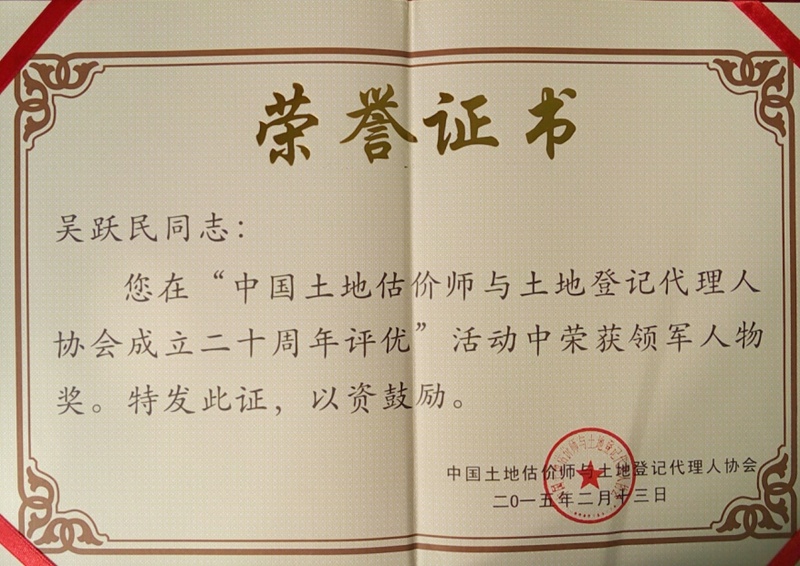 荣誉证书
吴跃民同志：
您在“中国土地估价师与土地登记代理人
协会成立二十周年评优”活动中荣获领军人物
奖。特发此证，以资鼓励。
中国土地估价师与土地登记代理人协会
二〇一五年二月十三日